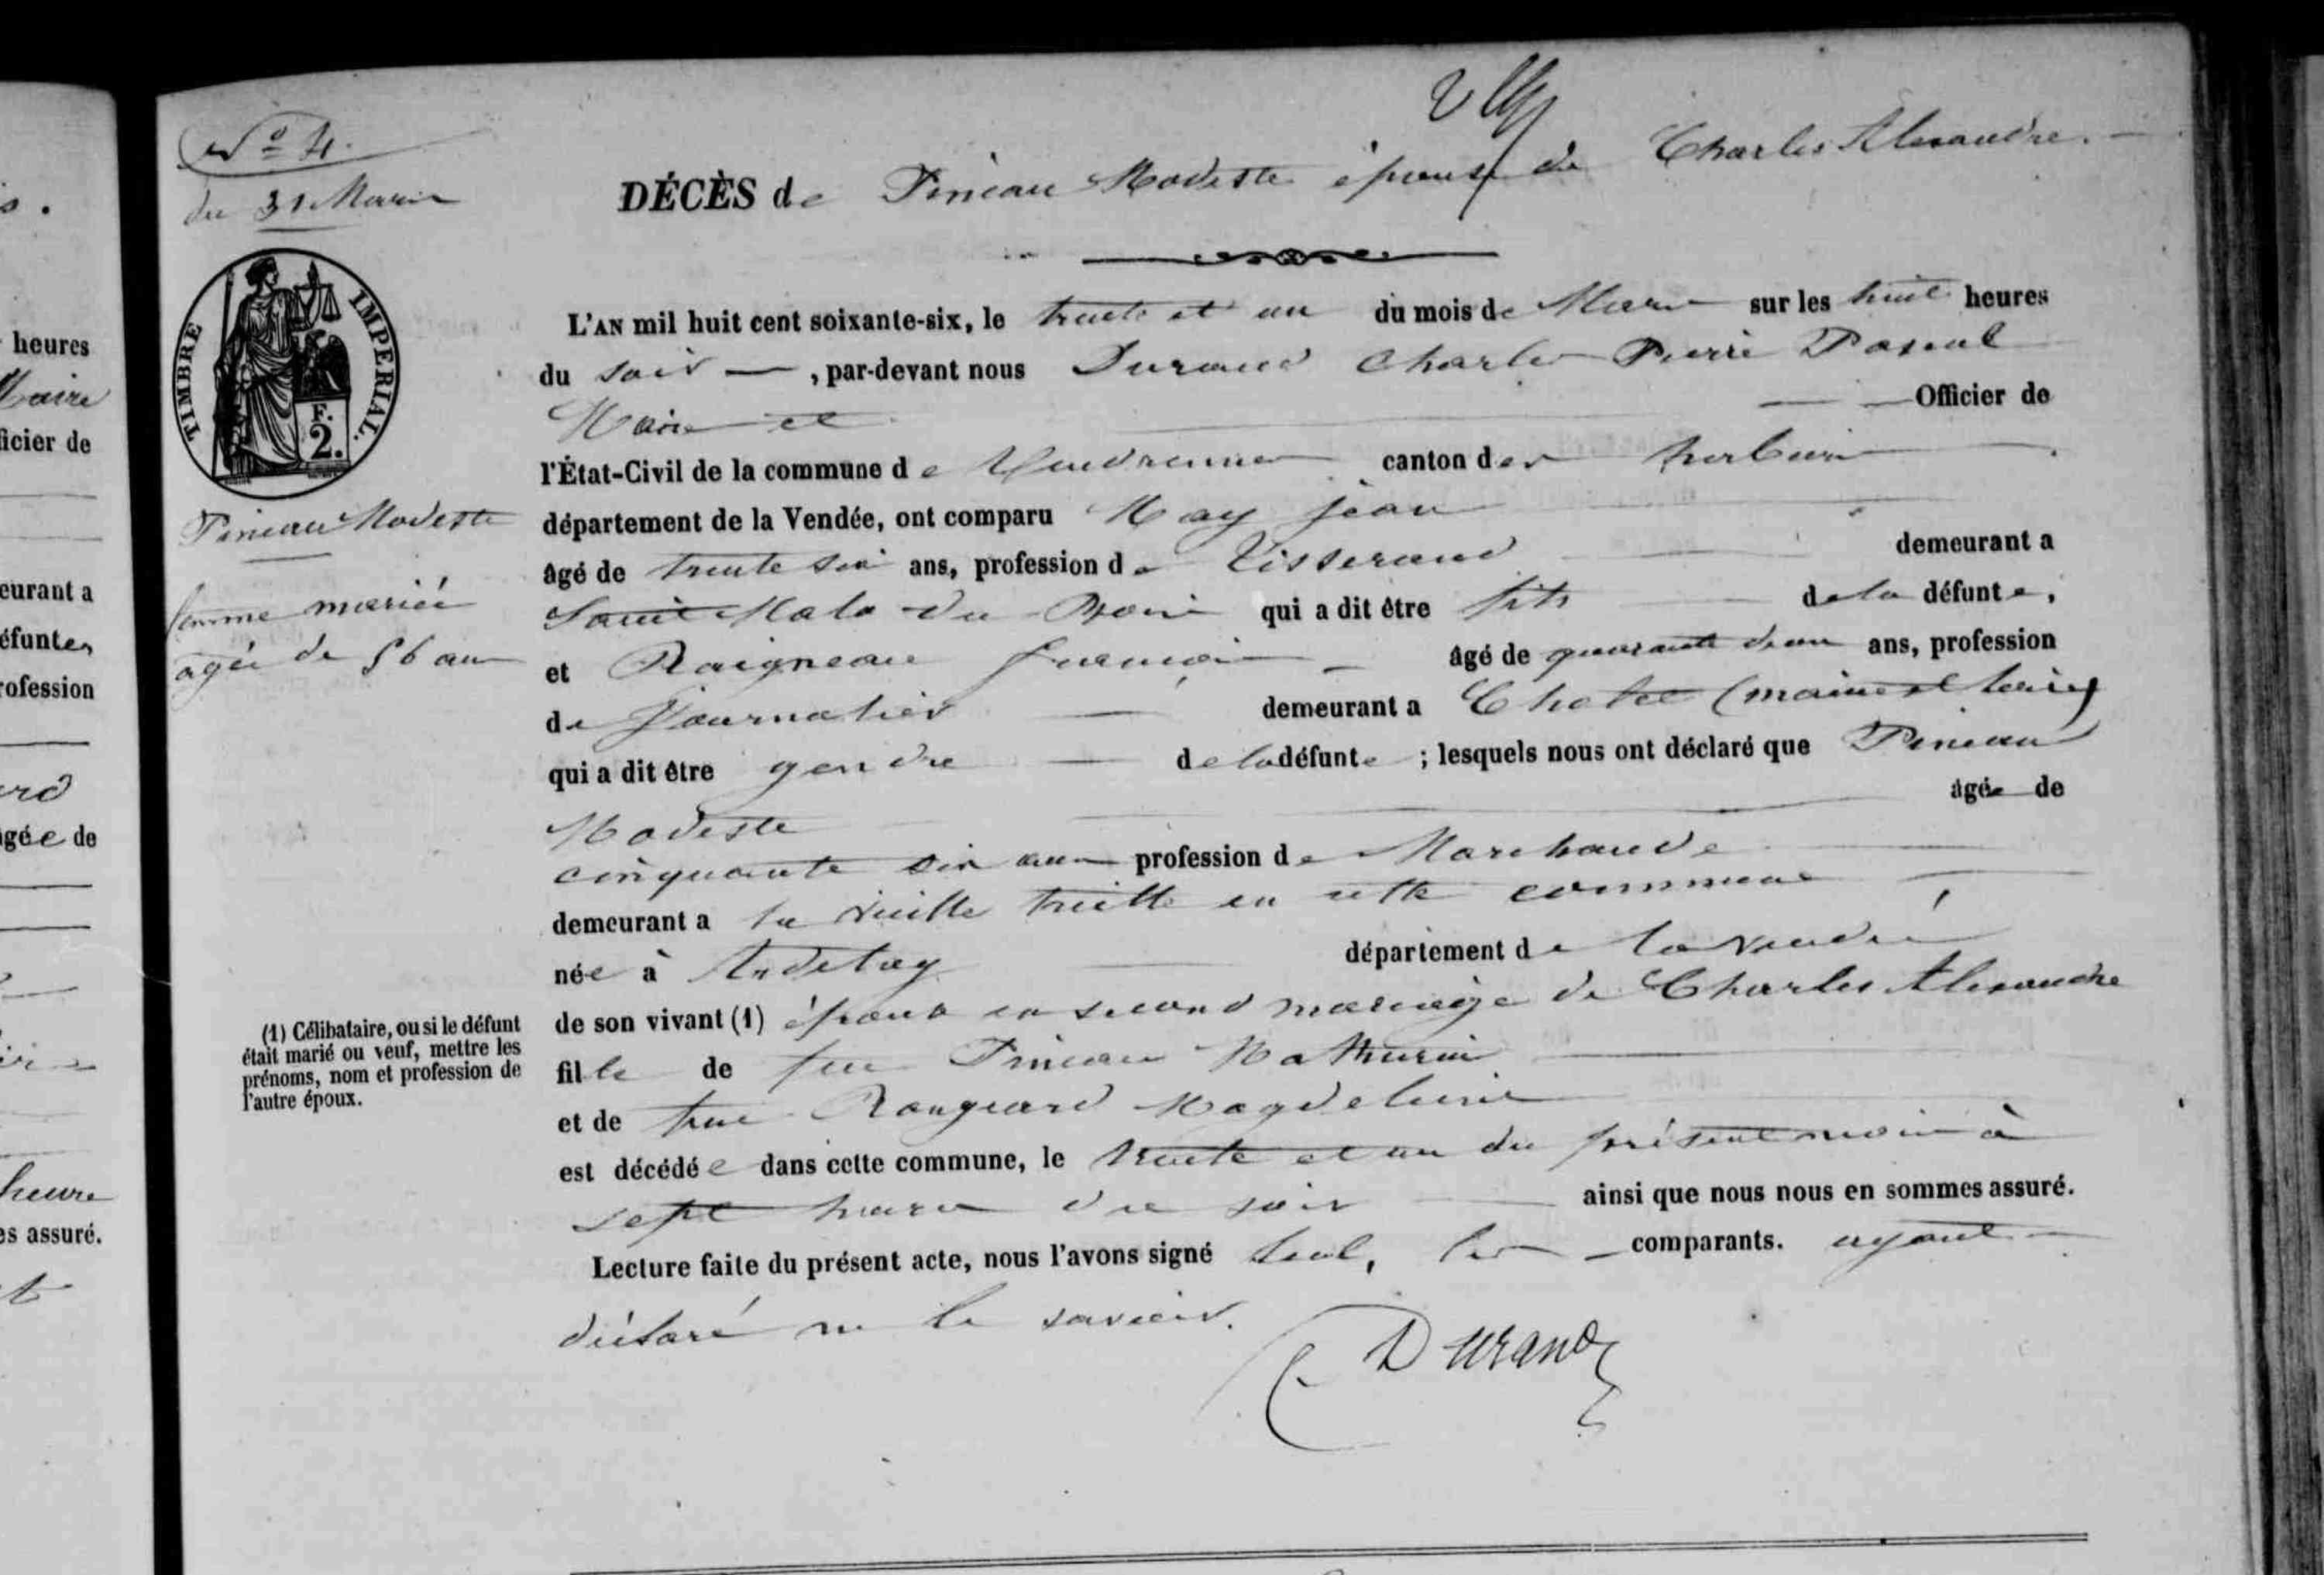 N° 4.
du 31 Mars
DÉCÈS de Pineau Modeste épouse de Charles Alexandre.
TIMBRE IMPERIAL.
F.
2.
L'AN mil huit cent soixante-six, le trente et un du mois de Mars sur les huit heures
du soir, par-devant nous Durand Charles Pierre Pascal
Maire et Officier de
l'État-Civil de la commune de Vendrennes canton des herbiers
département de la Vendée, ont comparu May jean
âgé de trente six ans, profession de Tisserand demeurant a
Saint Malo du Bois qui a dit être fils de la défunte,
et Raigneau françois âgé de quarante deux ans, profession
de Journalier demeurant a Cholet (maine et loire)
qui a dit être gendre de la défunte ; lesquels nous ont déclaré que Pineau
Modeste âgée de
cinquante six ans profession de Marchande
demeurant a la vieille treille en cette commune
née à Ardelay département de la vendée
de son vivant (1) épouse en second mariage de Charles Alexandre
fille de feu Pineau Mathurin
et de feue Magdeleine
est décédée dans cette commune, le trente et un du présent mois à
sept heures du soir ainsi que nous nous en sommes assuré.
Lecture faite du présent acte, nous l'avons signé seul, les comparants. ayant
déclaré ne le savoir.
Durand
Pineau Modeste
femme mariée
agée de 56 ans
(1) Célibataire, ou si le défunt
était marié ou veuf, mettre les
prénoms, nom et profession de
l'autre époux.
heures
Maire
ficier de
eurant a
éfuntes
rofession
gée de
heure
es assuré.